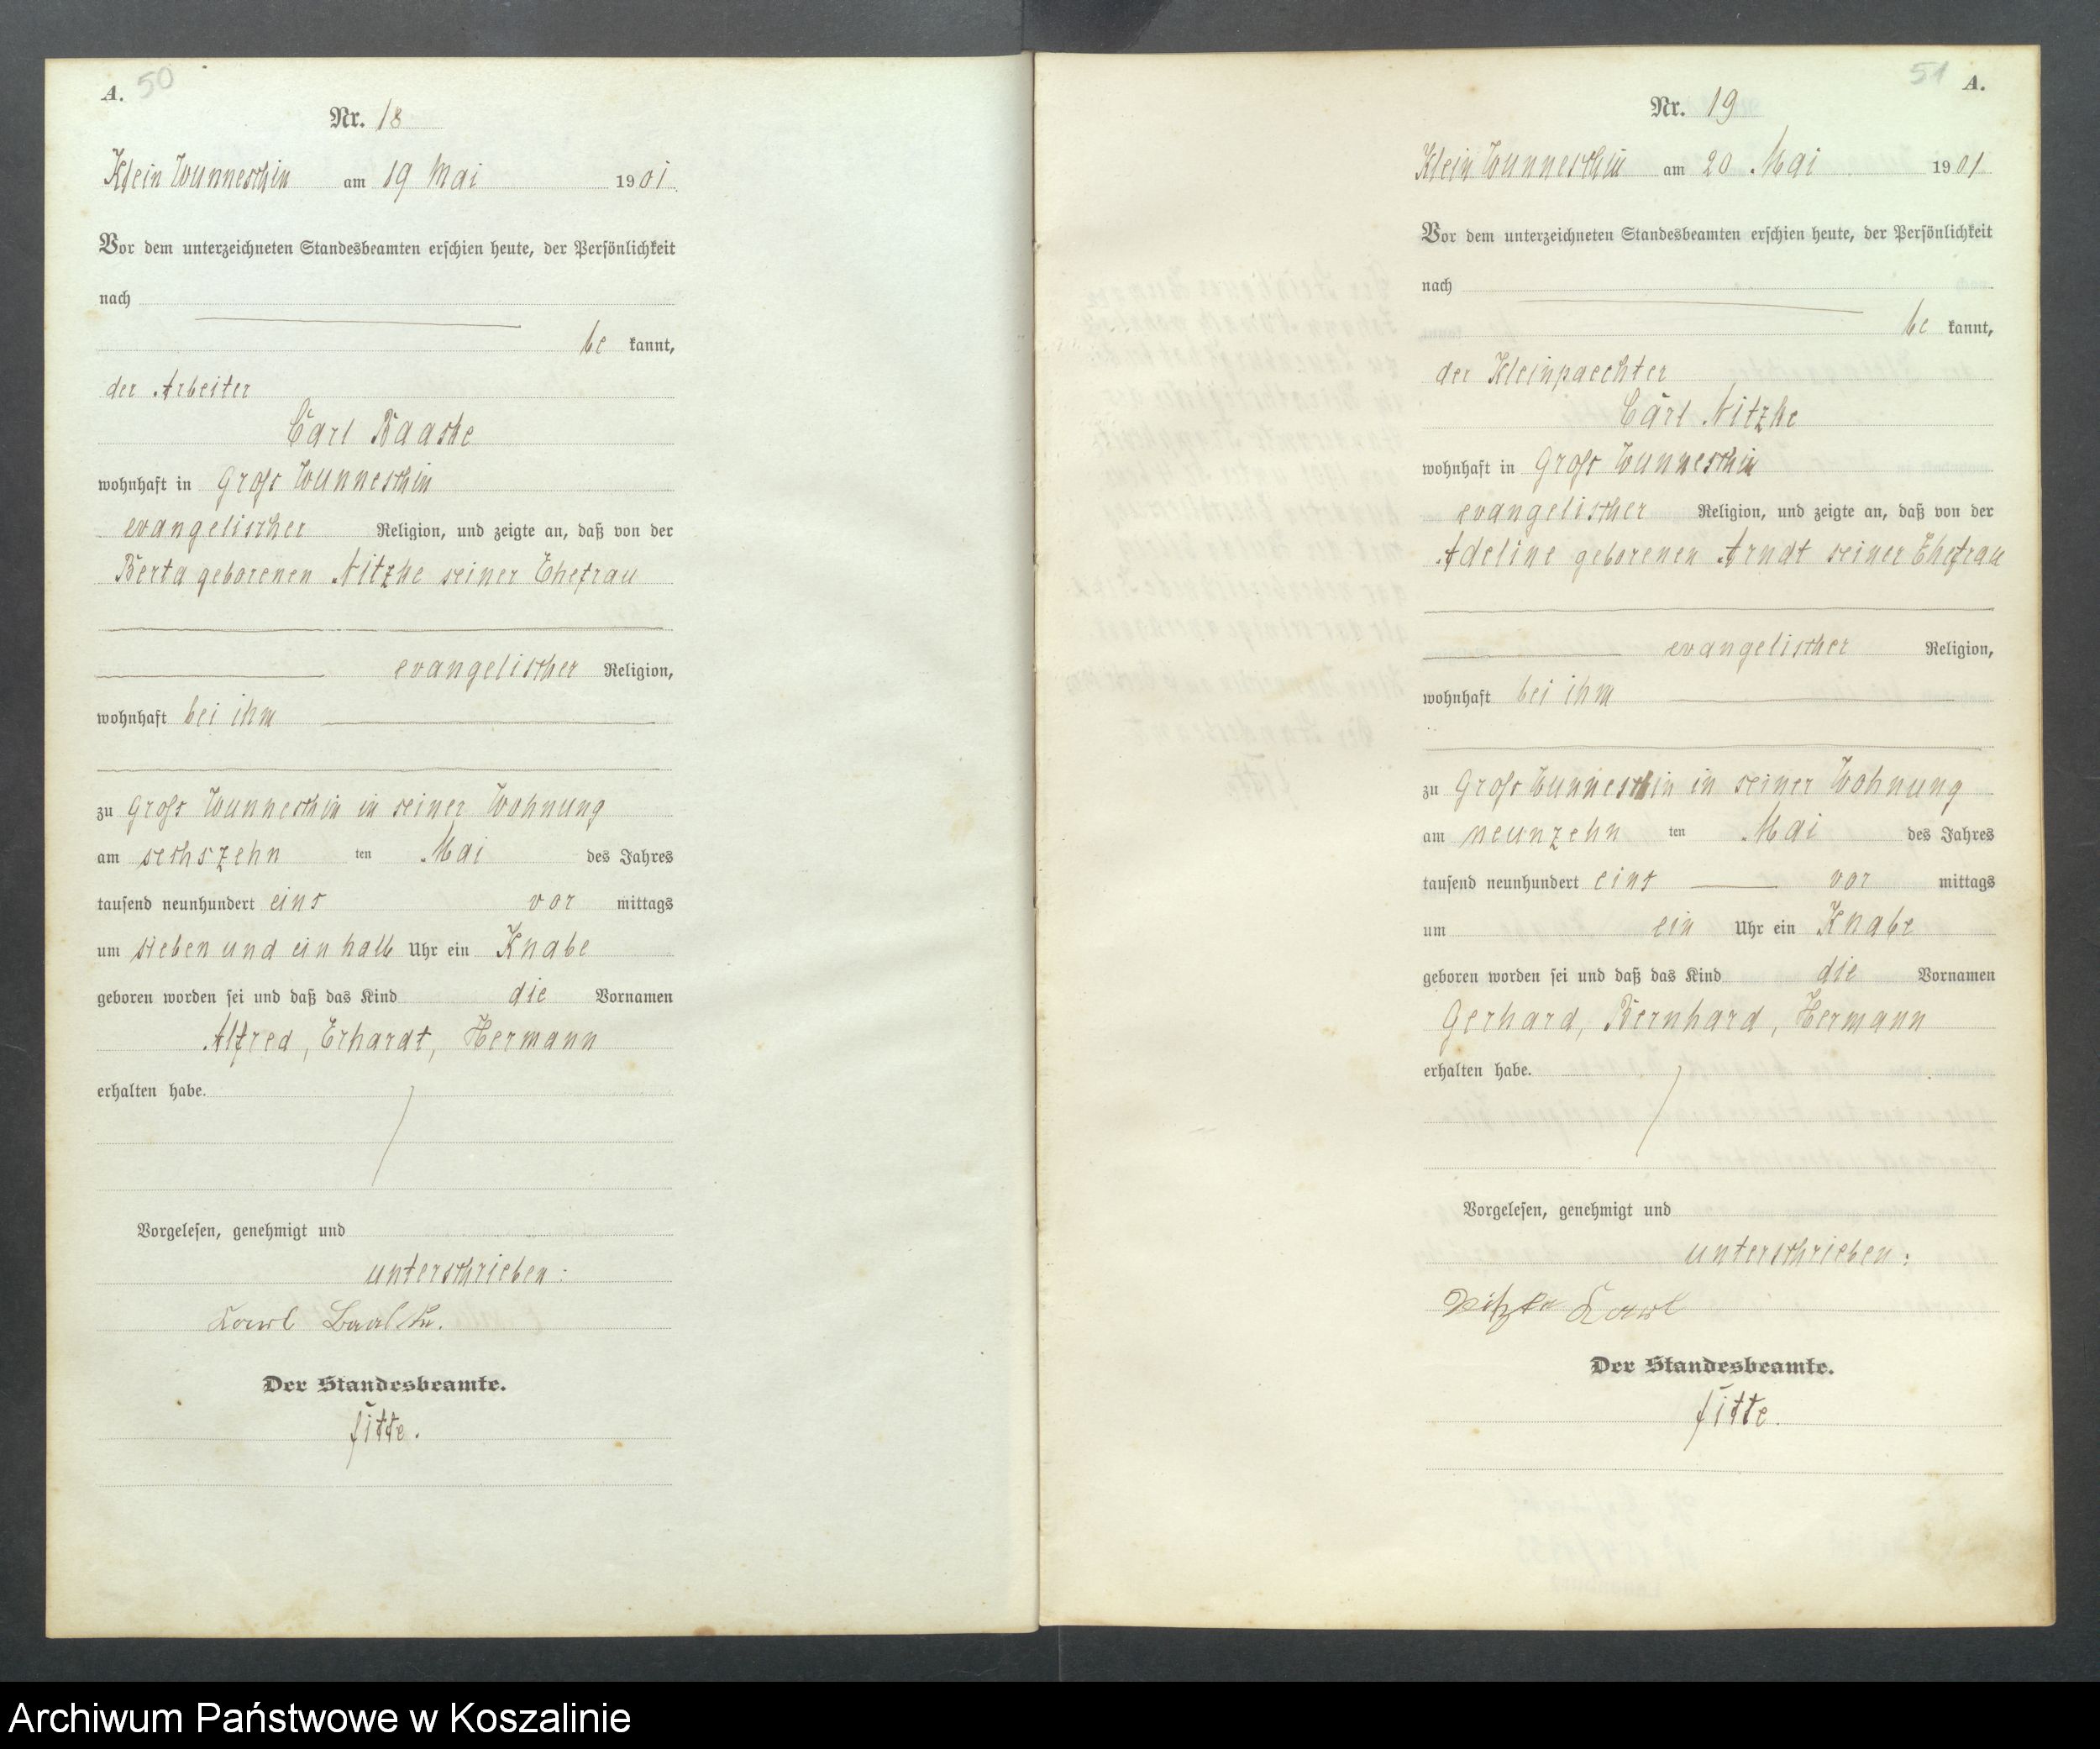 A. 50
Nr. 18
Klein Wunneschin am 19 Mai 1901.
Vor dem unterzeichneten Standesbeamten erschien heute, der Persönlichkeit
nach
be kannt,
der Arbeiter
Carl Baaske
wohnhaft in Gross Wunneschin
evangelischer Religion, und zeigte an, daß von der
Berta geborenen Nitzke seiner Ehefrau
evangelischer Religion,
wohnhaft bei ihm
zu Gross Wunneschin in seiner Wohnung
am sechszehn ten Mai des Jahres
tausend neunhundert eins vor mittags
um sieben und ein halb Uhr ein Knabe
geboren worden sei und daß das Kind die Vornamen
Alfred, Erhardt, Hermann
erhalten habe.
Vorgelesen, genehmigt und
unterschrieben:
Karl Baaske.
Der Standesbeamte.
Fitte.
51 A.
Nr. 19
Klein Wunneschin am 20 Mai 1901
Vor dem unterzeichneten Standesbeamten erschien heute, der Persönlichkeit
nach
be kannt,
der Kleinpaechter
Carl Nitzke
wohnhaft in Gross Wunneschin
evangelischer Religion, und zeigte an, daß von der
Adeline geborenen Arndt seiner Ehefrau
evangelischer Religion,
wohnhaft bei ihm
zu Gross Wunneschin in seiner Wohnung
am neunzehn ten Mai des Jahres
tausend neunhundert eins vor mittags
um ein Uhr ein Knabe
geboren worden sei und daß das Kind die Vornamen
Gerhard, Bernhard, Hermann
erhalten habe.
Vorgelesen, genehmigt und
unterschrieben:
Nitzke Karl
Der Standesbeamte.
Fitte.
Archiwum Państwowe w Koszalinie